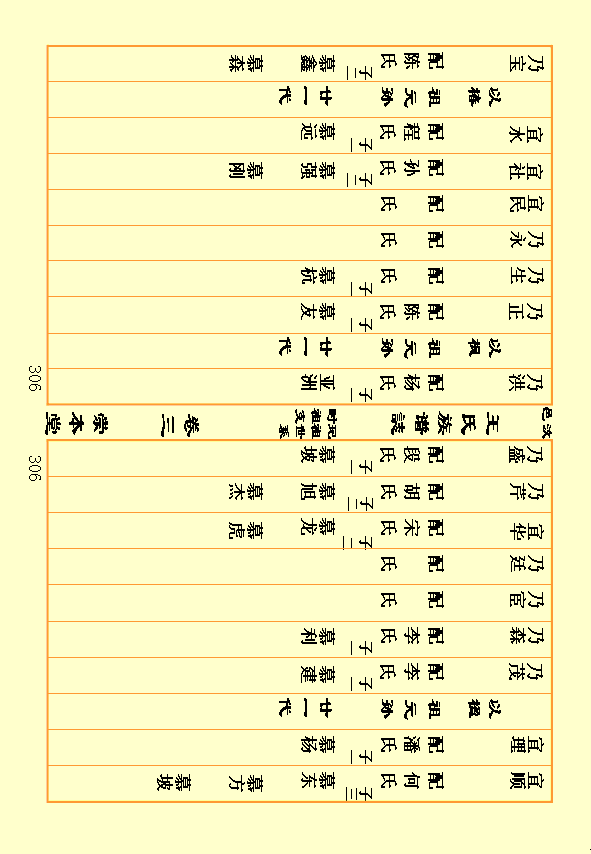 宜顺 配何氏 子三 慕东 慕方 慕坡
宜理 配潘氏 子一 慕杨
以 祖元孙 廿一代
乃茂 配李氏 子一 慕建
乃森 配李氏 子一 慕利
乃官 配 氏
乃廷 配 氏
宜华 配宋氏 子二 慕龙 慕虎
乃芹 配胡氏 子二 慕旭 慕杰
乃盛 配段氏 子一 慕坡
306
邑 王氏族谱誌 祖世系 祖支 卷三 崇本堂
乃洪 配杨氏 子一 亚洲
以 祖元孙 廿一代
乃正 配陈氏 子一 慕友
乃生 配 氏 子一 慕杭
乃永 配 氏
宜民 配 氏
宜社 配孙氏 子二 慕强 慕刚
宜水 配程氏 子一 慕远
以椿祖元孙 廿一代
乃宝 配陈氏 子二 慕鑫 慕森
306